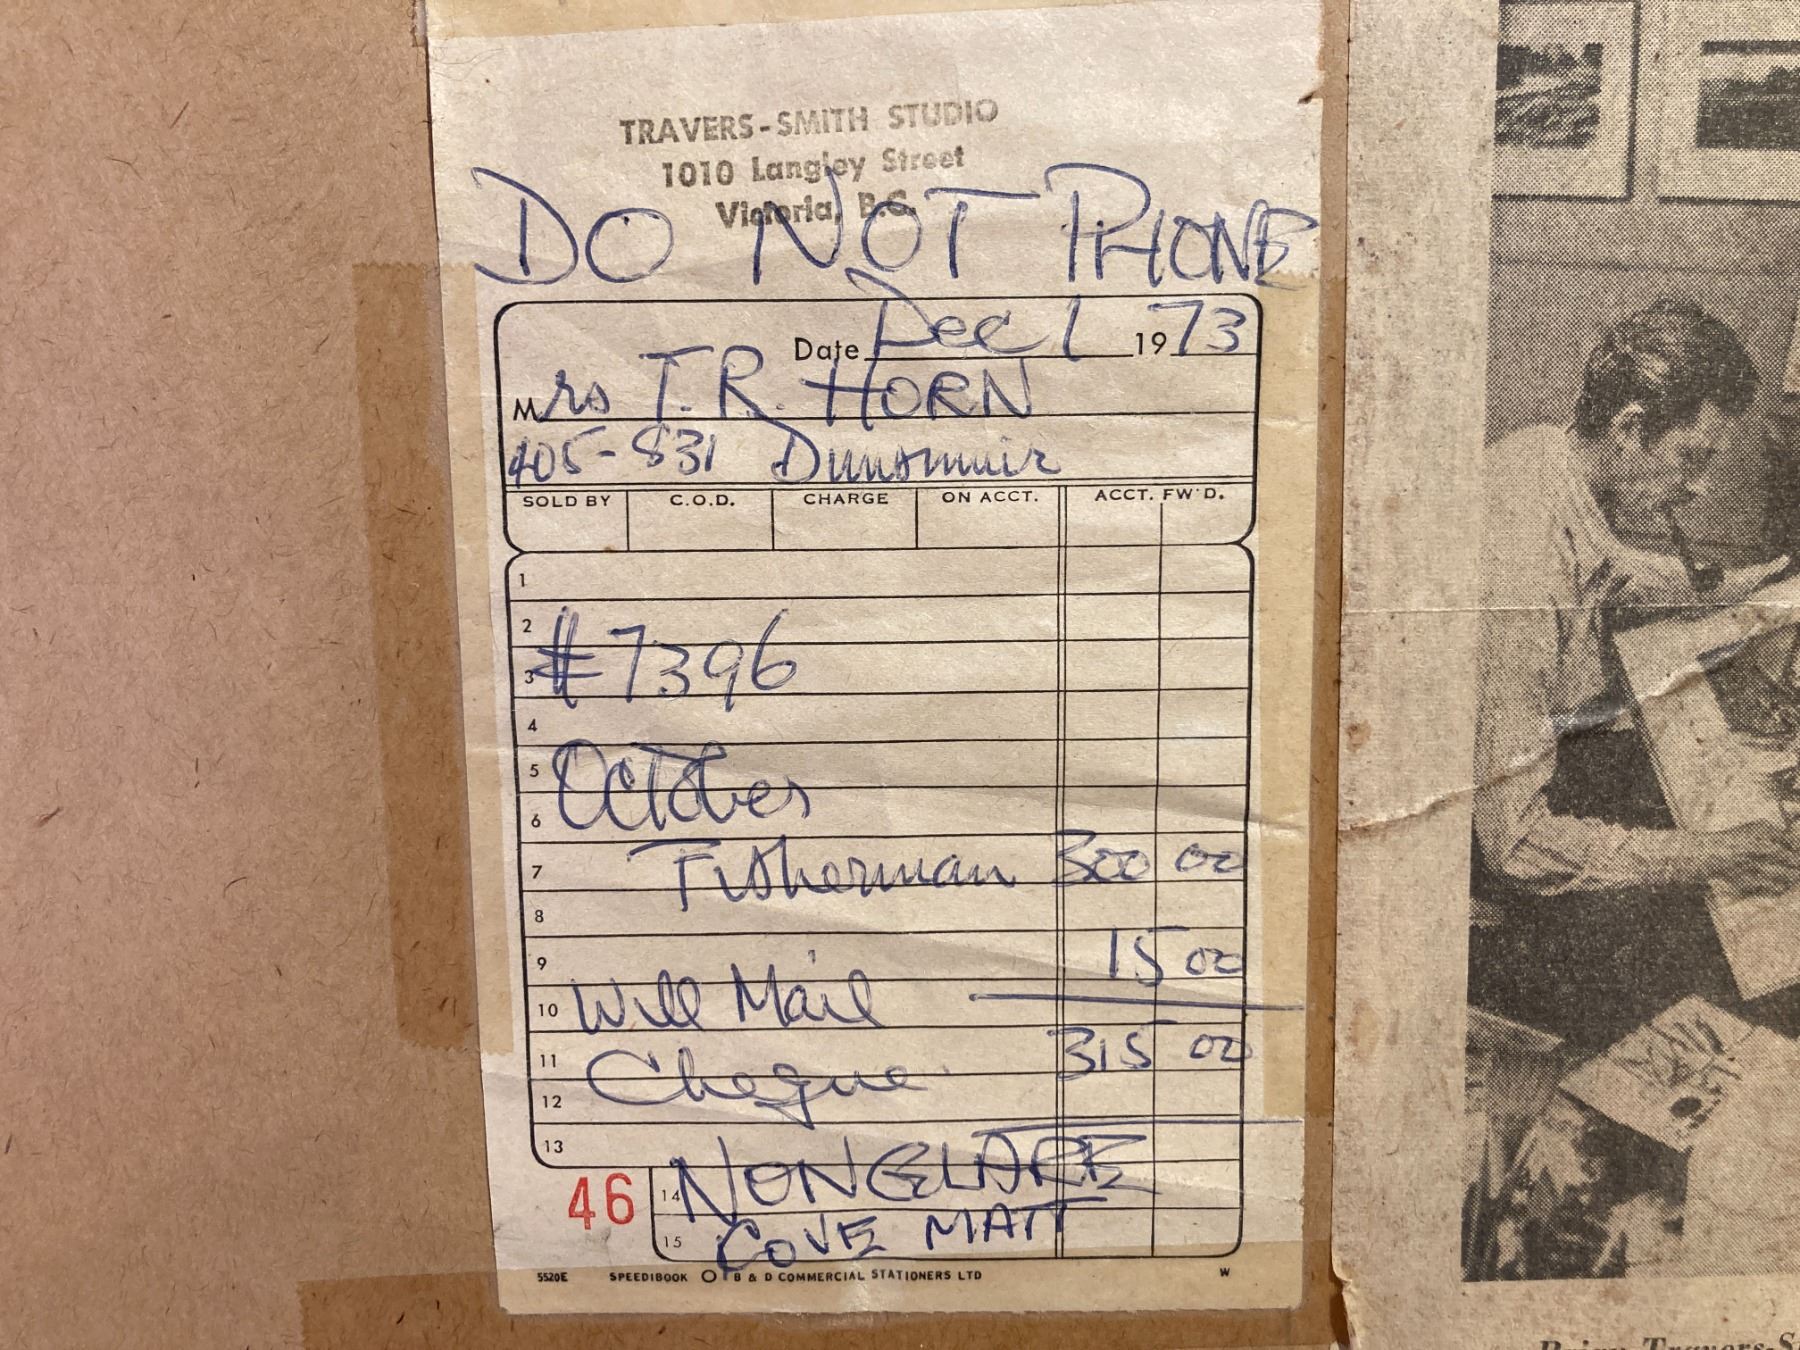 TRAVERS-SMITH STUDIO
1010 Langley Street
Victoria, B.C.
DO NOT PHONE
Date Dec 1 1973
Mrs T. R. HORN
405-831 Dunsmuir
SOLD BY C.O.D. CHARGE ON ACCT. ACCT. FW'D.
1
2
#7396
3
4
5
October
6
7 Fisherman 300 00
8
9 15 00
10 Will Mail
11 315 00
Cheque
12
13
46
14 NONGLARE
15 COVE MATT
5520E SPEEDIBOOK B & D COMMERCIAL STATIONERS LTD W
Brian Travers-S